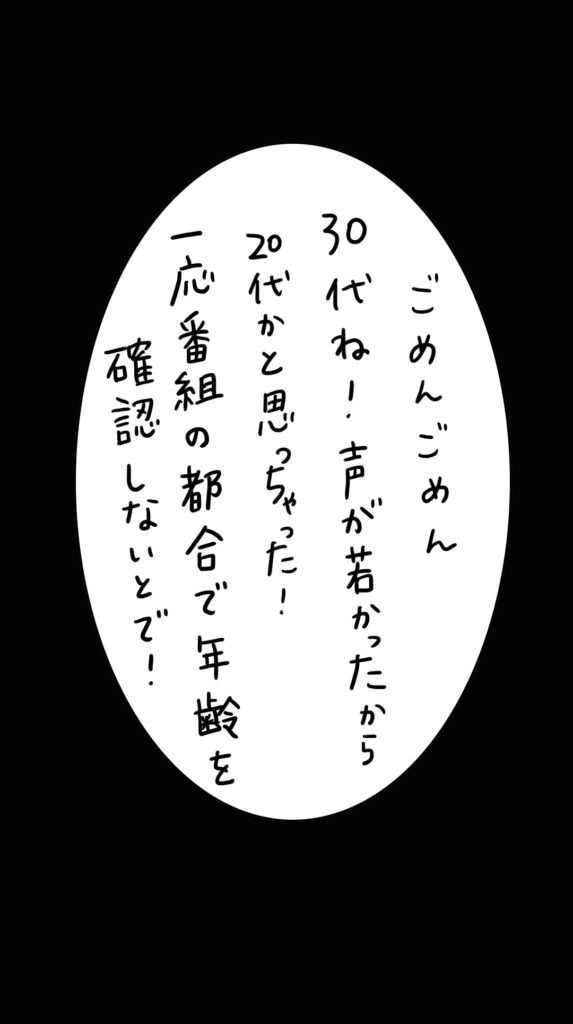 ごめんごめん
30代ね！声が若かったから
20代かと思っちゃった！
一応番組の都合で年齢を
確認しないとで！